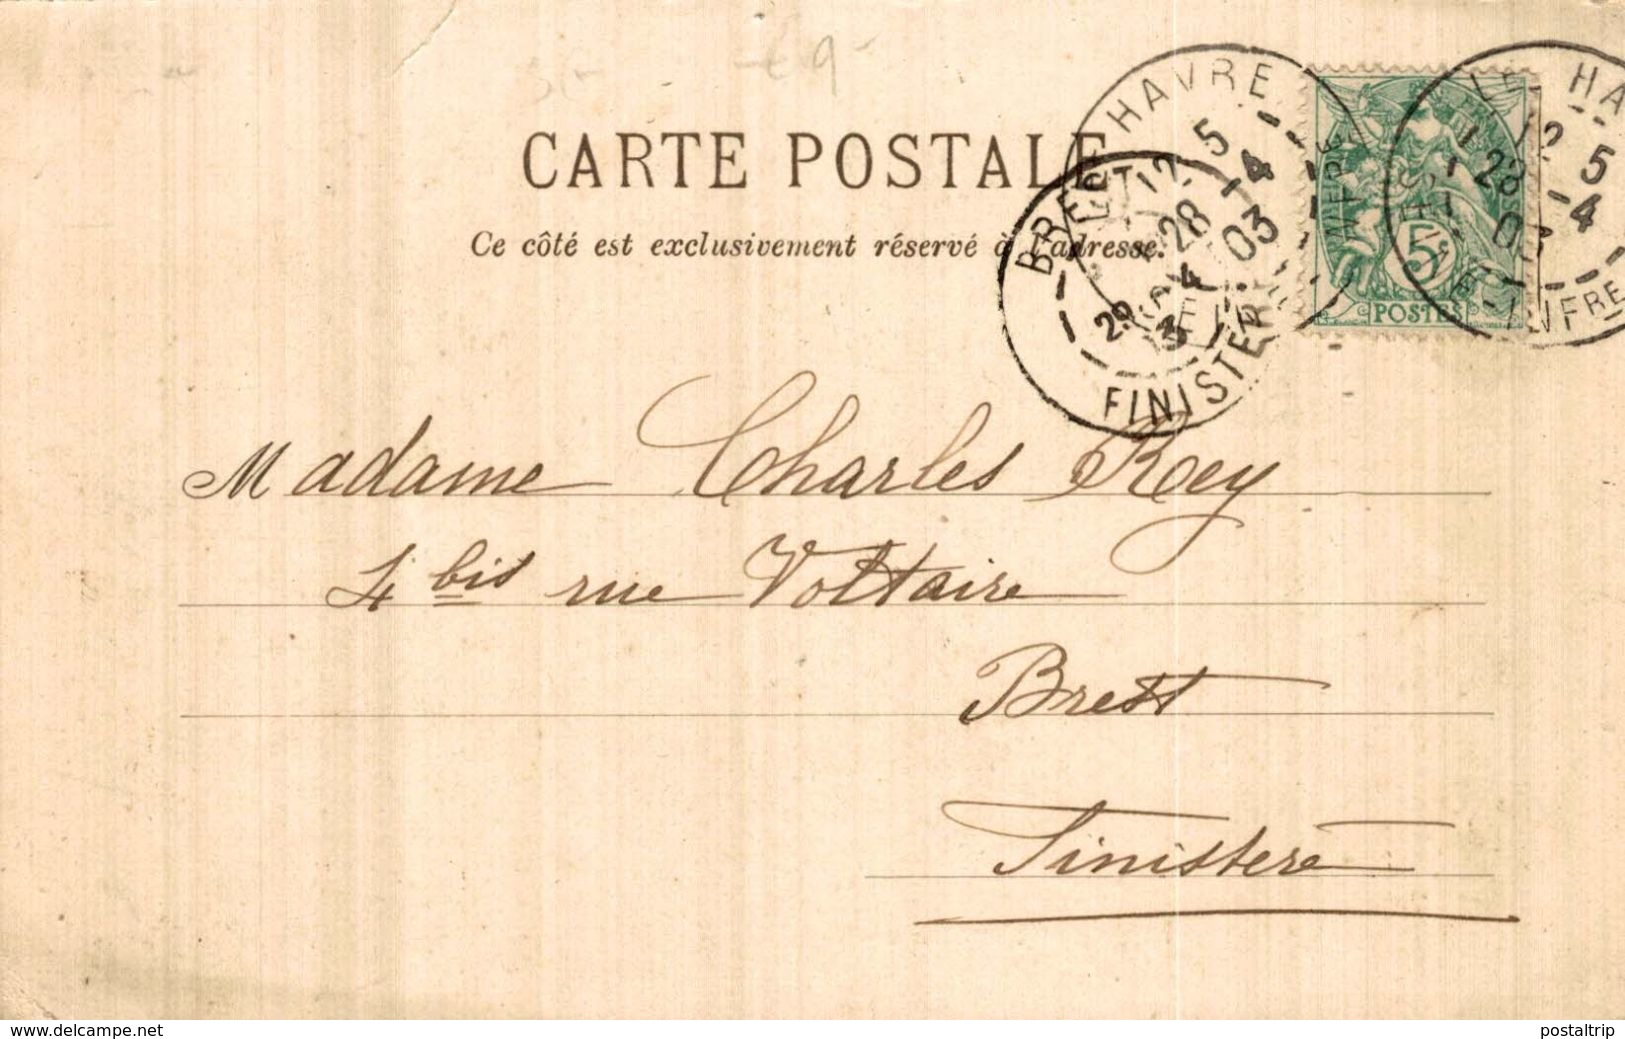 CARTE POSTALE
Ce côté est exclusivement réservé à l'adresse.
LE HAVRE
12 5
28 4
03
BREST
29 4
3
FINISTERE
LE HA
12 5
28 4
03
INFRE
5c
POSTES
Madame Charles Rey
4 bis rue Voltaire
Brest
Finistere
www.delcampe.net
postaltrip